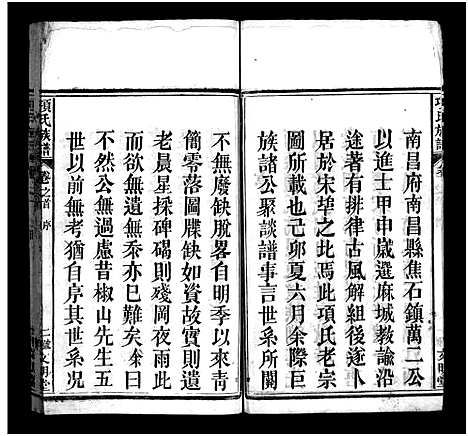 南昌府南昌縣焦石鎮萬二公
以進士甲申歲選麻城教諭沿
途著有排律古風解組後遂卜
居於宋埠之北馬此項氏老宗
圖所載也己卯夏六月余際巨
族諸公聚談譜事言世系所關
不無廢缺脫畧自明季以來青
簡零落圖牒缺如資故實則遺
老晨星採碑碣則殘岡夜雨此
而欲無遺無忝亦已難矣余曰
不然公無過慮昔椒山先生五
世以前無考猶自序其世系況
項氏族譜 卷之首 序 二
項氏族譜